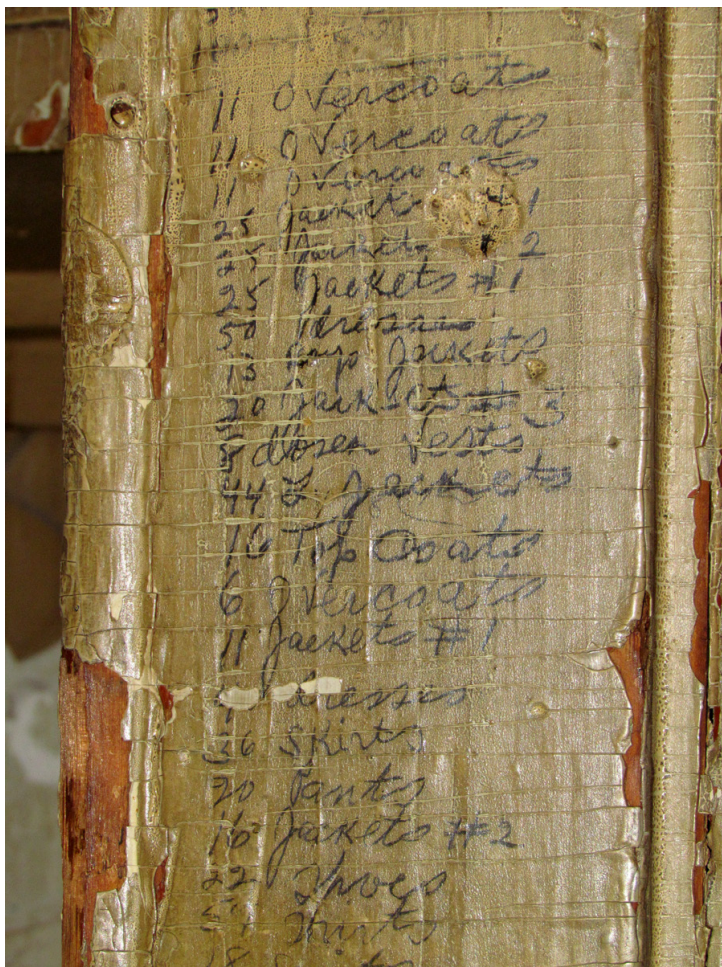 11 Overcoats
11 Overcoats
11 Overcoats
25 Jackets # 1
25 Jackets # 2
25 Jackets #1
50 dresses
Jackets
20 Jackets # 3
5 dozen Vests
44 Jackets
16 Top Coats
6 Overcoats
11 Jackets #1
dresses
36 Skirts
20 Pants
16 Jackets #2
22